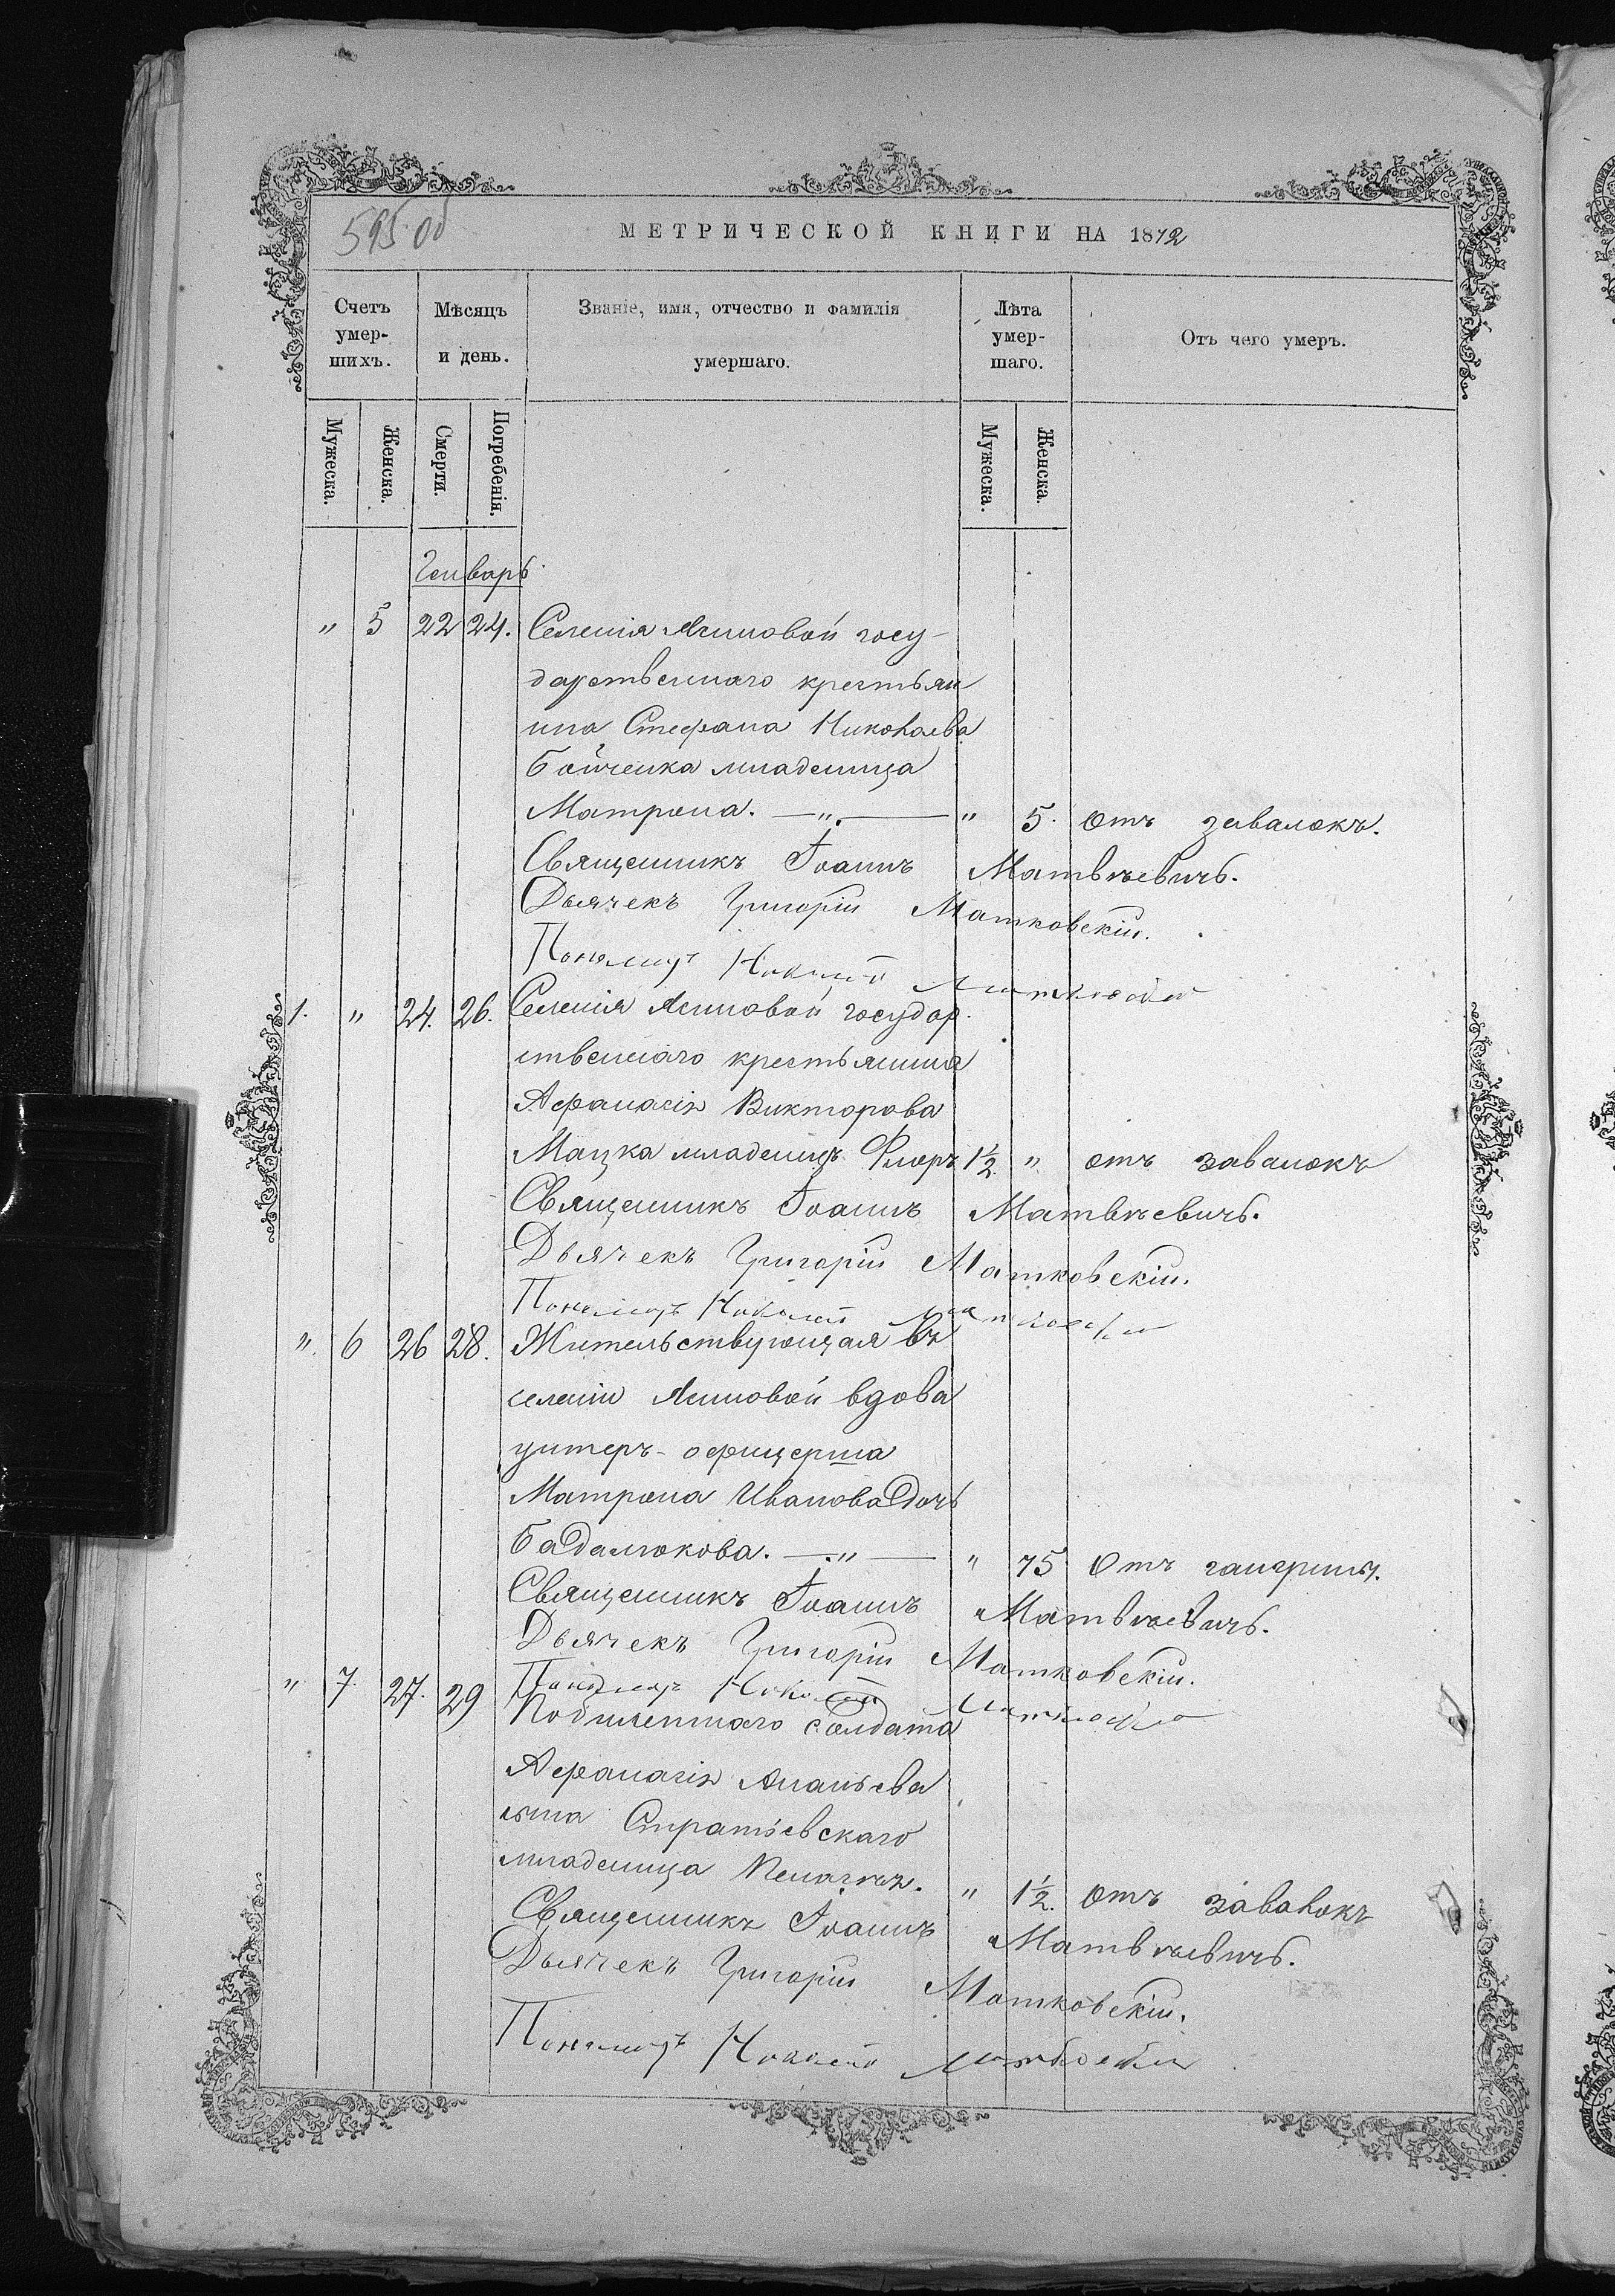 595 об
МЕТРИЧЕСКОЙ КНИГИ НА 1872
Счетъ умер-шихъ.
Мѣсяцъ и день.
Званіе, имя, отчество и фамилія умершаго.
Лѣта умер-шаго.
Отъ чего умеръ.
Мужеска. Женска. Смерти. Погребенія. Мужеска. Женска.
Генварь
" 5 22 24. Селенія Ясиновой госу-
дарственнаго крестьян
ина Стефана Николаева
Бойченка младеница
Матрона. —"— " 5. Отъ завалокъ.
Священникъ Іоаннъ Матвѣевичъ.
Дьячекъ Григорій Матковскій.
Пономарь Николай
1. " 24. 26. Селенія Ясиновой государ.
ственнаго крестьянина
Афанасія Викторова
Мацка младенецъ Флоръ 1½ " отъ завалокъ
Священникъ Іоаннъ Матвѣевичъ.
Дьячекъ Григорій Матковскій.
Пономарь Николай
" 6 26 28. Жительствующая въ
селеніи Ясиновой вдова
унтеръ-офицерша
Матрона Иванова дочь
Бадалюкова. —"— " 75 Отъ гангрины.
Священникъ Іоаннъ Матвѣевичъ.
Дьячекъ Григорій Матковскій.
Пономарь Николай
" 7. 27. 29 солдата
Афанасія Ананьева
сына Стратіевскаго
младеница Пелагія. " 1½. Отъ завалокъ
Священникъ Іоаннъ Матвѣевичъ.
Дьячекъ Григорій Матковскій.
Пономарь Николай